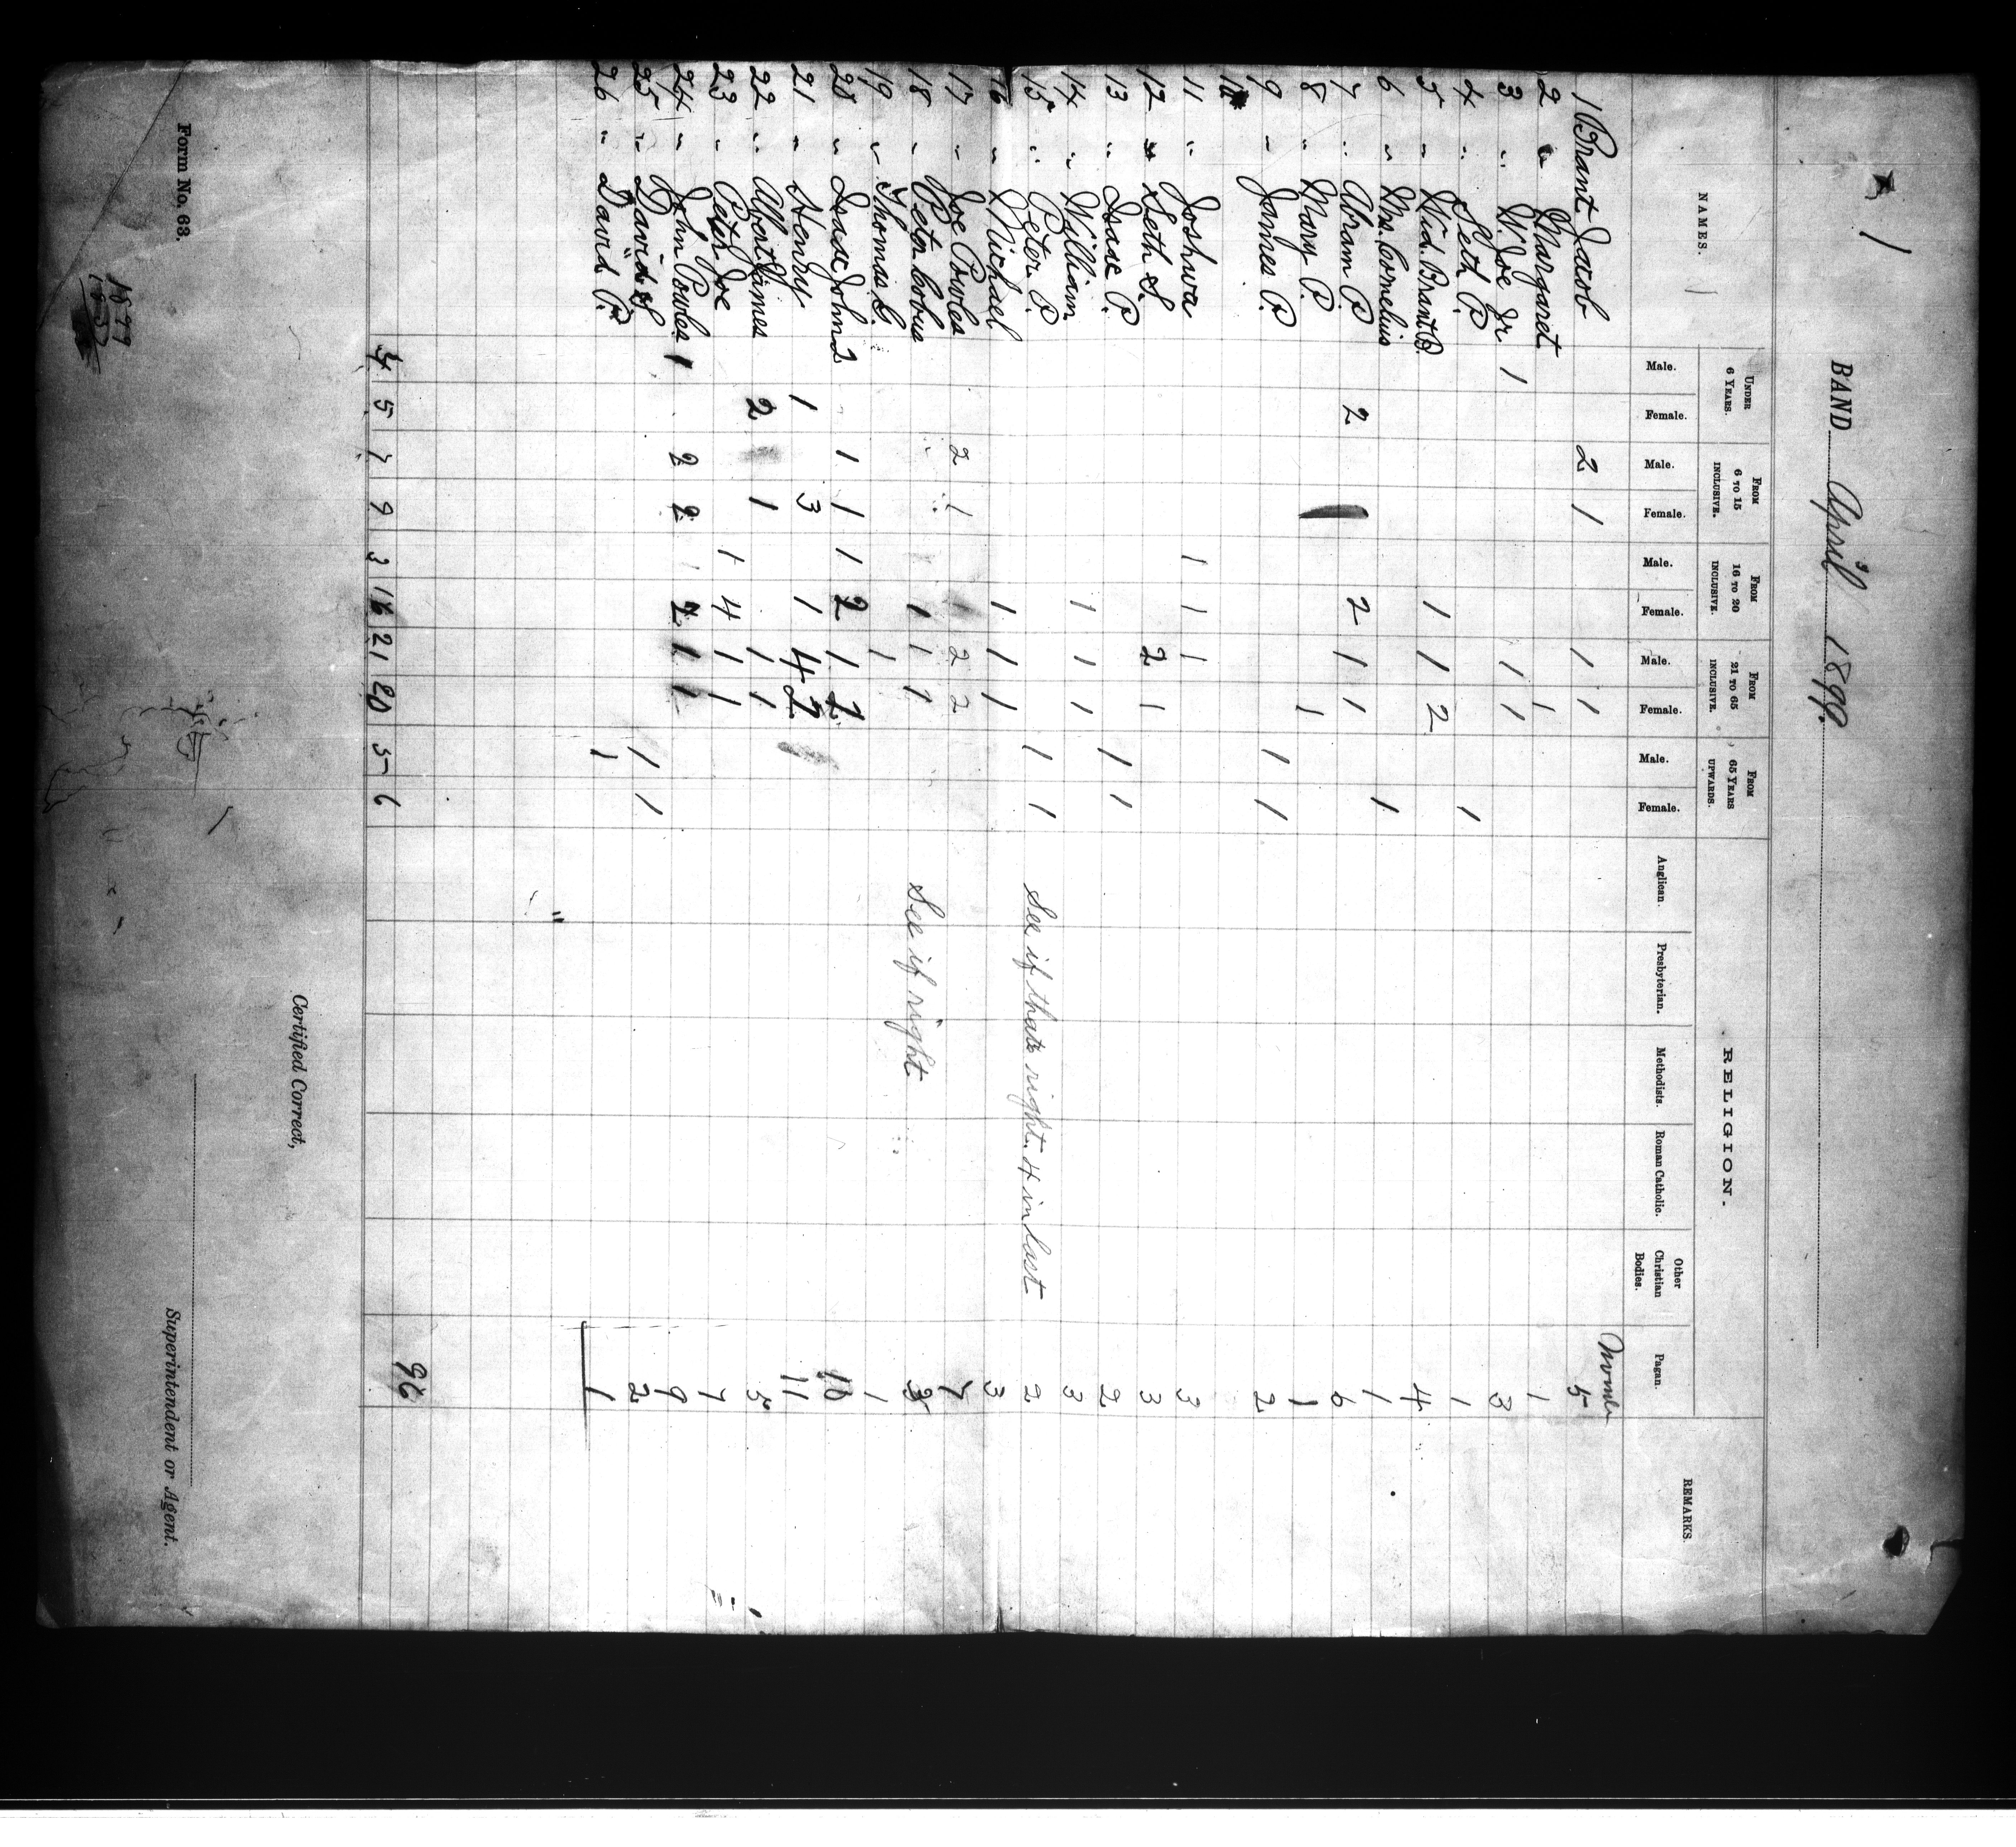 1
BAND April 3 1899.
NAMES.
UNDER 6 YEARS.
FROM 6 TO 15 INCLUSIVE.
FROM 16 TO 20 INCLUSIVE.
FROM 21 TO 65 INCLUSIVE.
FROM 65 YEARS UPWARDS.
RELIGION.
REMARKS.
Male. Female. Male. Female. Male. Female. Male. Female. Male. Female.
Anglican. Presbyterian. Methodists. Roman Catholic. Other Christian Bodies. Pagan.
1 Brant Jacob 2 1 1 1 5
2 " Margaret 1 1
3 " W. Joe Jr 1 1 1 3
4 " Seth P. 1 1
5 " Wid. Brant B. 1 1 2 4
6 " Mrs. Cornelius 1 1
7 " Abram P. 2 2 1 1 6
8 " Mary P. 1 1
9 " James P. 1 1 2
10
11 " Joshua 1 1 1 3
12 " Seth S. 2 1 3
13 " Isaac P. 1 1 2
14 " William 1 1 1 3
15 " Peter P. 1 1 See if thats right. 4 in last 2
16 " Michael 1 1 1 3
17 " Joe Powles 2 1 2 2 7
18 " Peter Cobus 1 1 1 See if right 3
19 " Thomas G. 1 1
20 " Isaac John 2 1 1 1 2 1 10
21 " Henry 1 3 1 4 2 11
22 " Albert James 2 1 1 1 5
23 " Peter Joe 1 4 1 1 7
24 " John Powles 1 2 2 2 1 1 9
25 " David S 1 1 2
26 " David P. 1 1
4 5 7 9 3 16 21 20 5 6 96
Certified Correct,
Superintendent or Agent.
Form No. 63.
1899